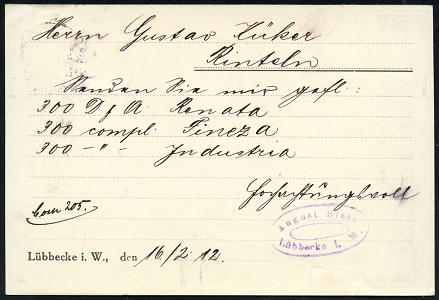 Herrn Gustav Züker
Rinteln
Senden Sie mir gefl.:
300 D/A Renata
300 compl. Fineza
300 -"- Industria
Hochachtungsvoll
205.
August
Lübbecke i. W.
Lübbecke i. W., den 16/2 12.